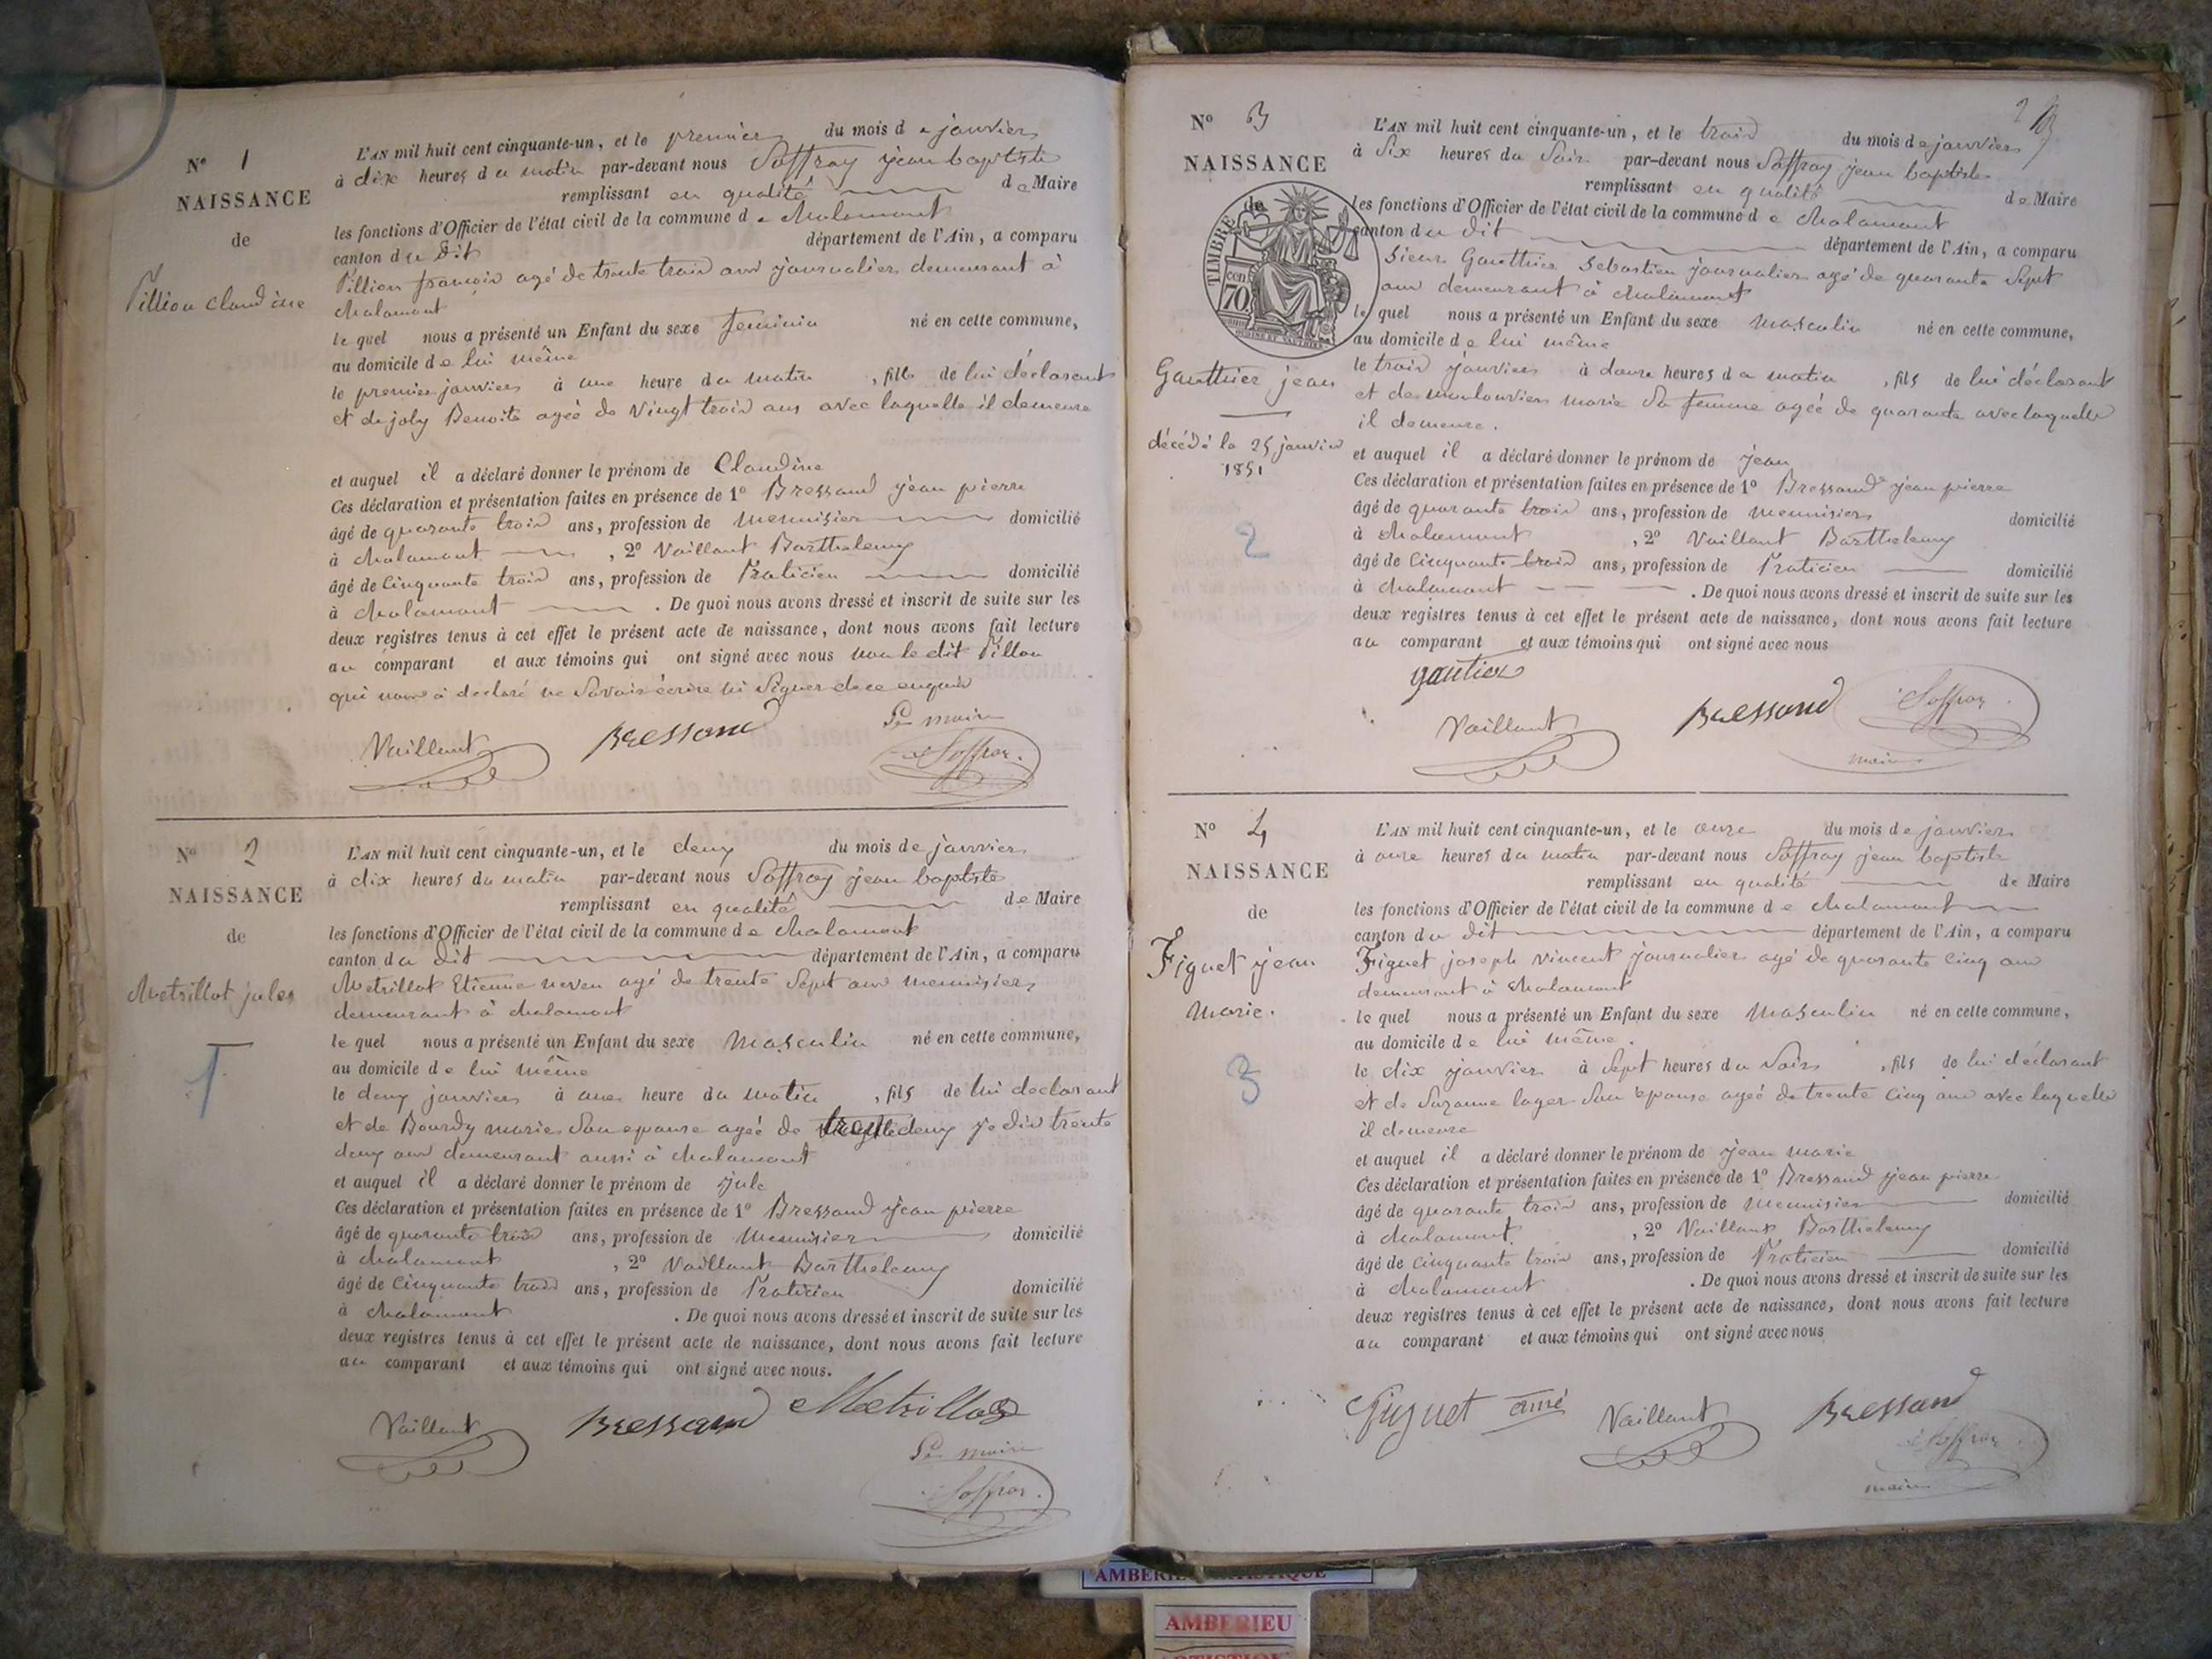 N° 1
NAISSANCE
de
Pillion Claudine
L'AN mil huit cent cinquante-un, et le premier du mois de janvier
à dix heures du matin par-devant nous Soffray jean baptiste
remplissant en qualité de Maire
les fonctions d'Officier de l'état civil de la commune de chalamont
canton du dit département de l'Ain, a comparu
Pillion françois agé de trente trois ans journalier demeurant à
chalamont
le quel nous a présenté un Enfant du sexe feminin né en cette commune,
au domicile de lui même
le premier janvier à une heure du matin , fille de lui déclarant
et de joly Benoite agée de vingt trois ans avec laquelle il demeure
et auquel il a déclaré donner le prénom de Claudine
Ces déclaration et présentation faites en présence de 1° Bressand jean pierre
âgé de quarante trois ans, profession de menuisier domicilié
à chalamont , 2° Vaillant Barthelemy
âgé de cinquante trois ans, profession de Praticien domicilié
à chalamont . De quoi nous avons dressé et inscrit de suite sur les
deux registres tenus à cet effet le présent acte de naissance, dont nous avons fait lecture
au comparant et aux témoins qui ont signé avec nous non le dit Pillon
qui nous a declaré ne savoir écrire ni signer de ce enquis
Vaillant Bressand Le maire
Soffray
N° 2
NAISSANCE
de
Metrillot jules
1
L'AN mil huit cent cinquante-un, et le deux du mois de janvier
à dix heures du matin par-devant nous Soffray jean baptiste
remplissant en qualité de Maire
les fonctions d'Officier de l'état civil de la commune de chalamont
canton du dit département de l'Ain, a comparu
Metrillot Etienne neveu agé de trente sept ans menuisier
demeurant à chalamont
le quel nous a présenté un Enfant du sexe masculin né en cette commune,
au domicile de lui même
le deux janvier à une heure du matin , fils de lui declarant
et de Bourdy marie son epouse agée de trente deux je dis trente
deux ans demeurant aussi à chalamont
et auquel il a déclaré donner le prénom de jule
Ces déclaration et présentation faites en présence de 1° Bressand jean pierre
âgé de quarante trois ans, profession de menuisier domicilié
à chalamont , 2° Vaillant Barthelemy
âgé de cinquante trois ans, profession de Praticien domicilié
à chalamont . De quoi nous avons dressé et inscrit de suite sur les
deux registres tenus à cet effet le présent acte de naissance, dont nous avons fait lecture
au comparant et aux témoins qui ont signé avec nous.
Vaillant Bressand Metrillot
Le maire
Soffray
N° 3
NAISSANCE
de
TIMBRE
70 cen
Gautthier jean
décédé le 25 janvier
1851
2
L'AN mil huit cent cinquante-un, et le trois du mois de janvier
à six heures du soir par-devant nous Soffray jean baptiste
remplissant en qualité de Maire
les fonctions d'Officier de l'état civil de la commune de chalamont
canton du dit département de l'Ain, a comparu
sieur Gautthier Sebastien journalier agé de quarante sept
ans demeurant à chalamont
le quel nous a présenté un Enfant du sexe masculin né en cette commune,
au domicile de lui même
le trois janvier à douze heures du matin , fils de lui déclarant
et de marie sa femme agée de quarante avec laquelle
il demeure.
et auquel il a déclaré donner le prénom de jean
Ces déclaration et présentation faites en présence de 1° Bressand jean pierre
âgé de quarante trois ans, profession de menuisier domicilié
à chalamont , 2° Vaillant Barthelemy
âgé de cinquante trois ans, profession de Praticien domicilié
à chalamont . De quoi nous avons dressé et inscrit de suite sur les
deux registres tenus à cet effet le présent acte de naissance, dont nous avons fait lecture
au comparant et aux témoins qui ont signé avec nous
gautier
Vaillant Bressand Soffray
maire
N° 4
NAISSANCE
de
Figuet jean
marie.
3
L'AN mil huit cent cinquante-un, et le onze du mois de janvier
à onze heures du matin par-devant nous Soffray jean baptiste
remplissant en qualité de Maire
les fonctions d'Officier de l'état civil de la commune de chalamont
canton du dit département de l'Ain, a comparu
Figuet joseph vincent journalier agé de quarante cinq ans
demeurant à chalamont
le quel nous a présenté un Enfant du sexe masculin né en cette commune,
au domicile de lui même.
le dix janvier à sept heures du soir , fils de lui déclarant
et de Suzanne lager son epouse agée de trente cinq ans avec laquelle
il demeure
et auquel il a déclaré donner le prénom de jean marie
Ces déclaration et présentation faites en présence de 1° Bressand jean pierre
âgé de quarante trois ans, profession de menuisier domicilié
à chalamont , 2° Vaillant Barthelemy
âgé de cinquante trois ans, profession de Praticien domicilié
à chalamont . De quoi nous avons dressé et inscrit de suite sur les
deux registres tenus à cet effet le présent acte de naissance, dont nous avons fait lecture
au comparant et aux témoins qui ont signé avec nous
Figuet ainé Vaillant Bressand
Soffray
maire
AMBERIEU